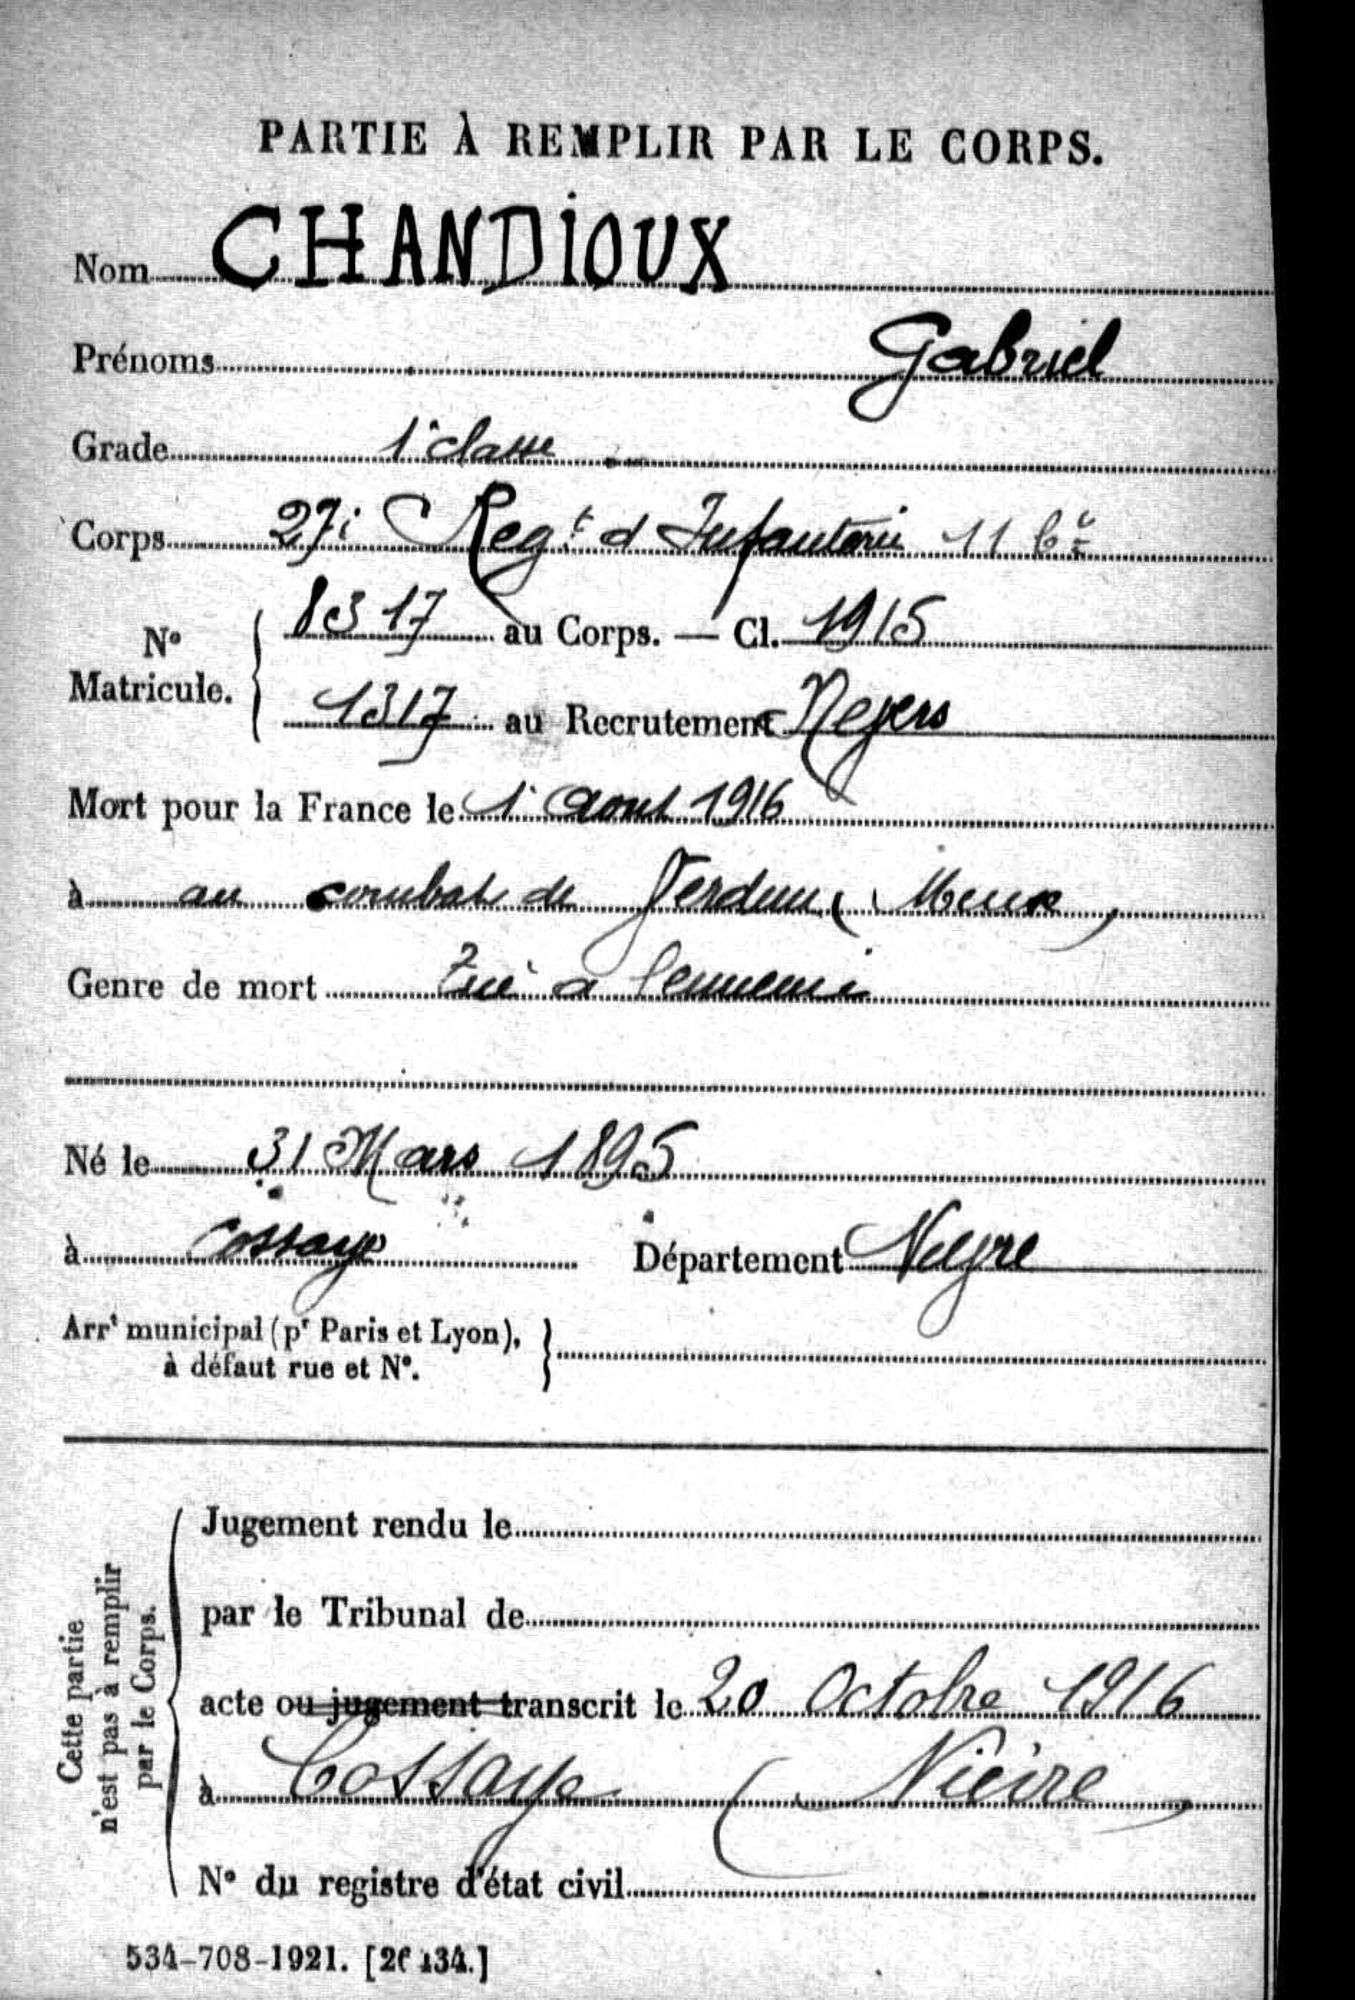 PARTIE À REMPLIR PAR LE CORPS.
Nom CHANDIOUX
Prénoms Gabriel
Grade 1e classe
Corps 27e Regt d Infanterie 11 Cie
No Matricule. 8317 au Corps. — Cl. 1915
1317 au Recrutement Nevers
Mort pour la France le 1e aout 1916
à au combat de Verdun (Meuse)
Genre de mort Tué a l'ennemi
Né le 31 Mars 1895
à Cossaye Département Nievre
Arrt municipal (pr Paris et Lyon),
à défaut rue et No.
Cette partie n'est pas à remplir par le Corps.
Jugement rendu le
par le Tribunal de
acte ou jugement transcrit le 20 Octobre 1916
à Cossaye (Nièvre)
No du registre d'état civil
534-708-1921. [26434.]